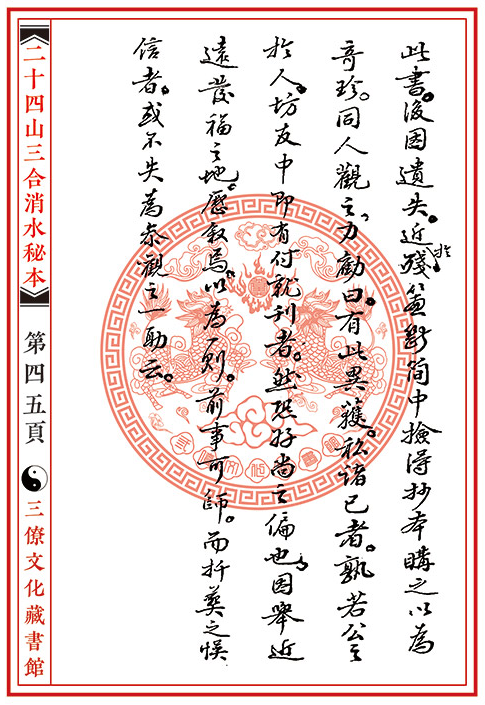 此書。後因遺失。近於殘篋斷简中撿得抄本購之以為
奇珍。同人觀之、力勸曰。有此異獲。私諸己者。孰若公之
於人。坊友中即有付就刋者。然恐好尚之偏也、因舉近
遠發福之地。歷叙焉、以為一則。前事可師。而扦葬之悮
信者。或不失為叅觀之一助云。
【二十四山三合消水秘本】
第四五頁
三僚文化藏書館